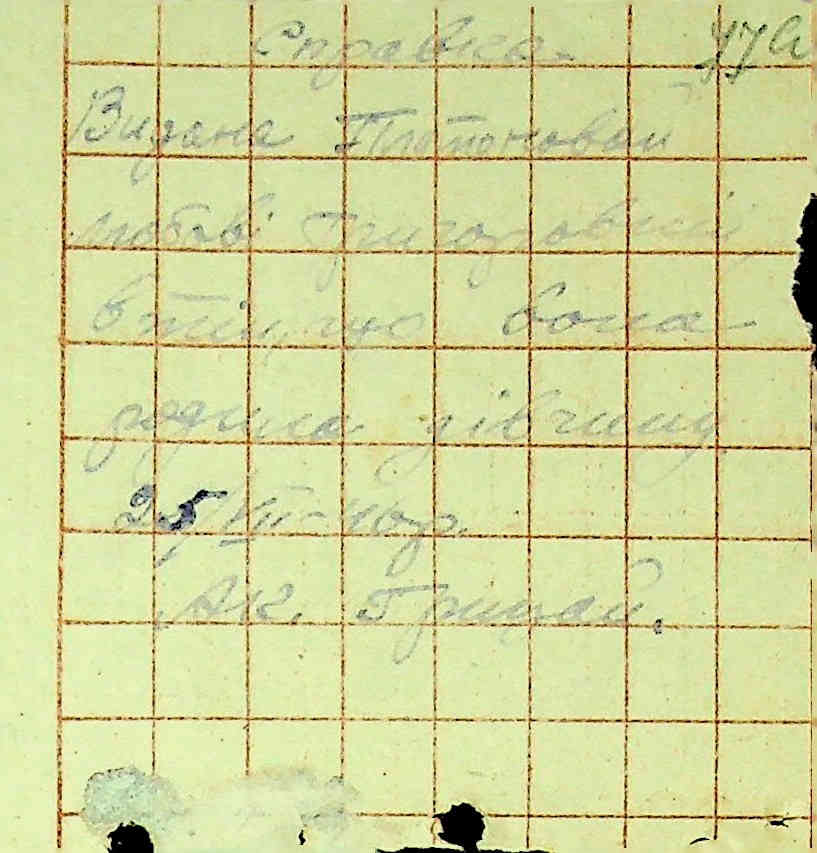 Справка
Видана Платоновай
Любові Григоровній
в тім, що вона
родила дівчину
25/VII-46р.
Ак. Грицай.